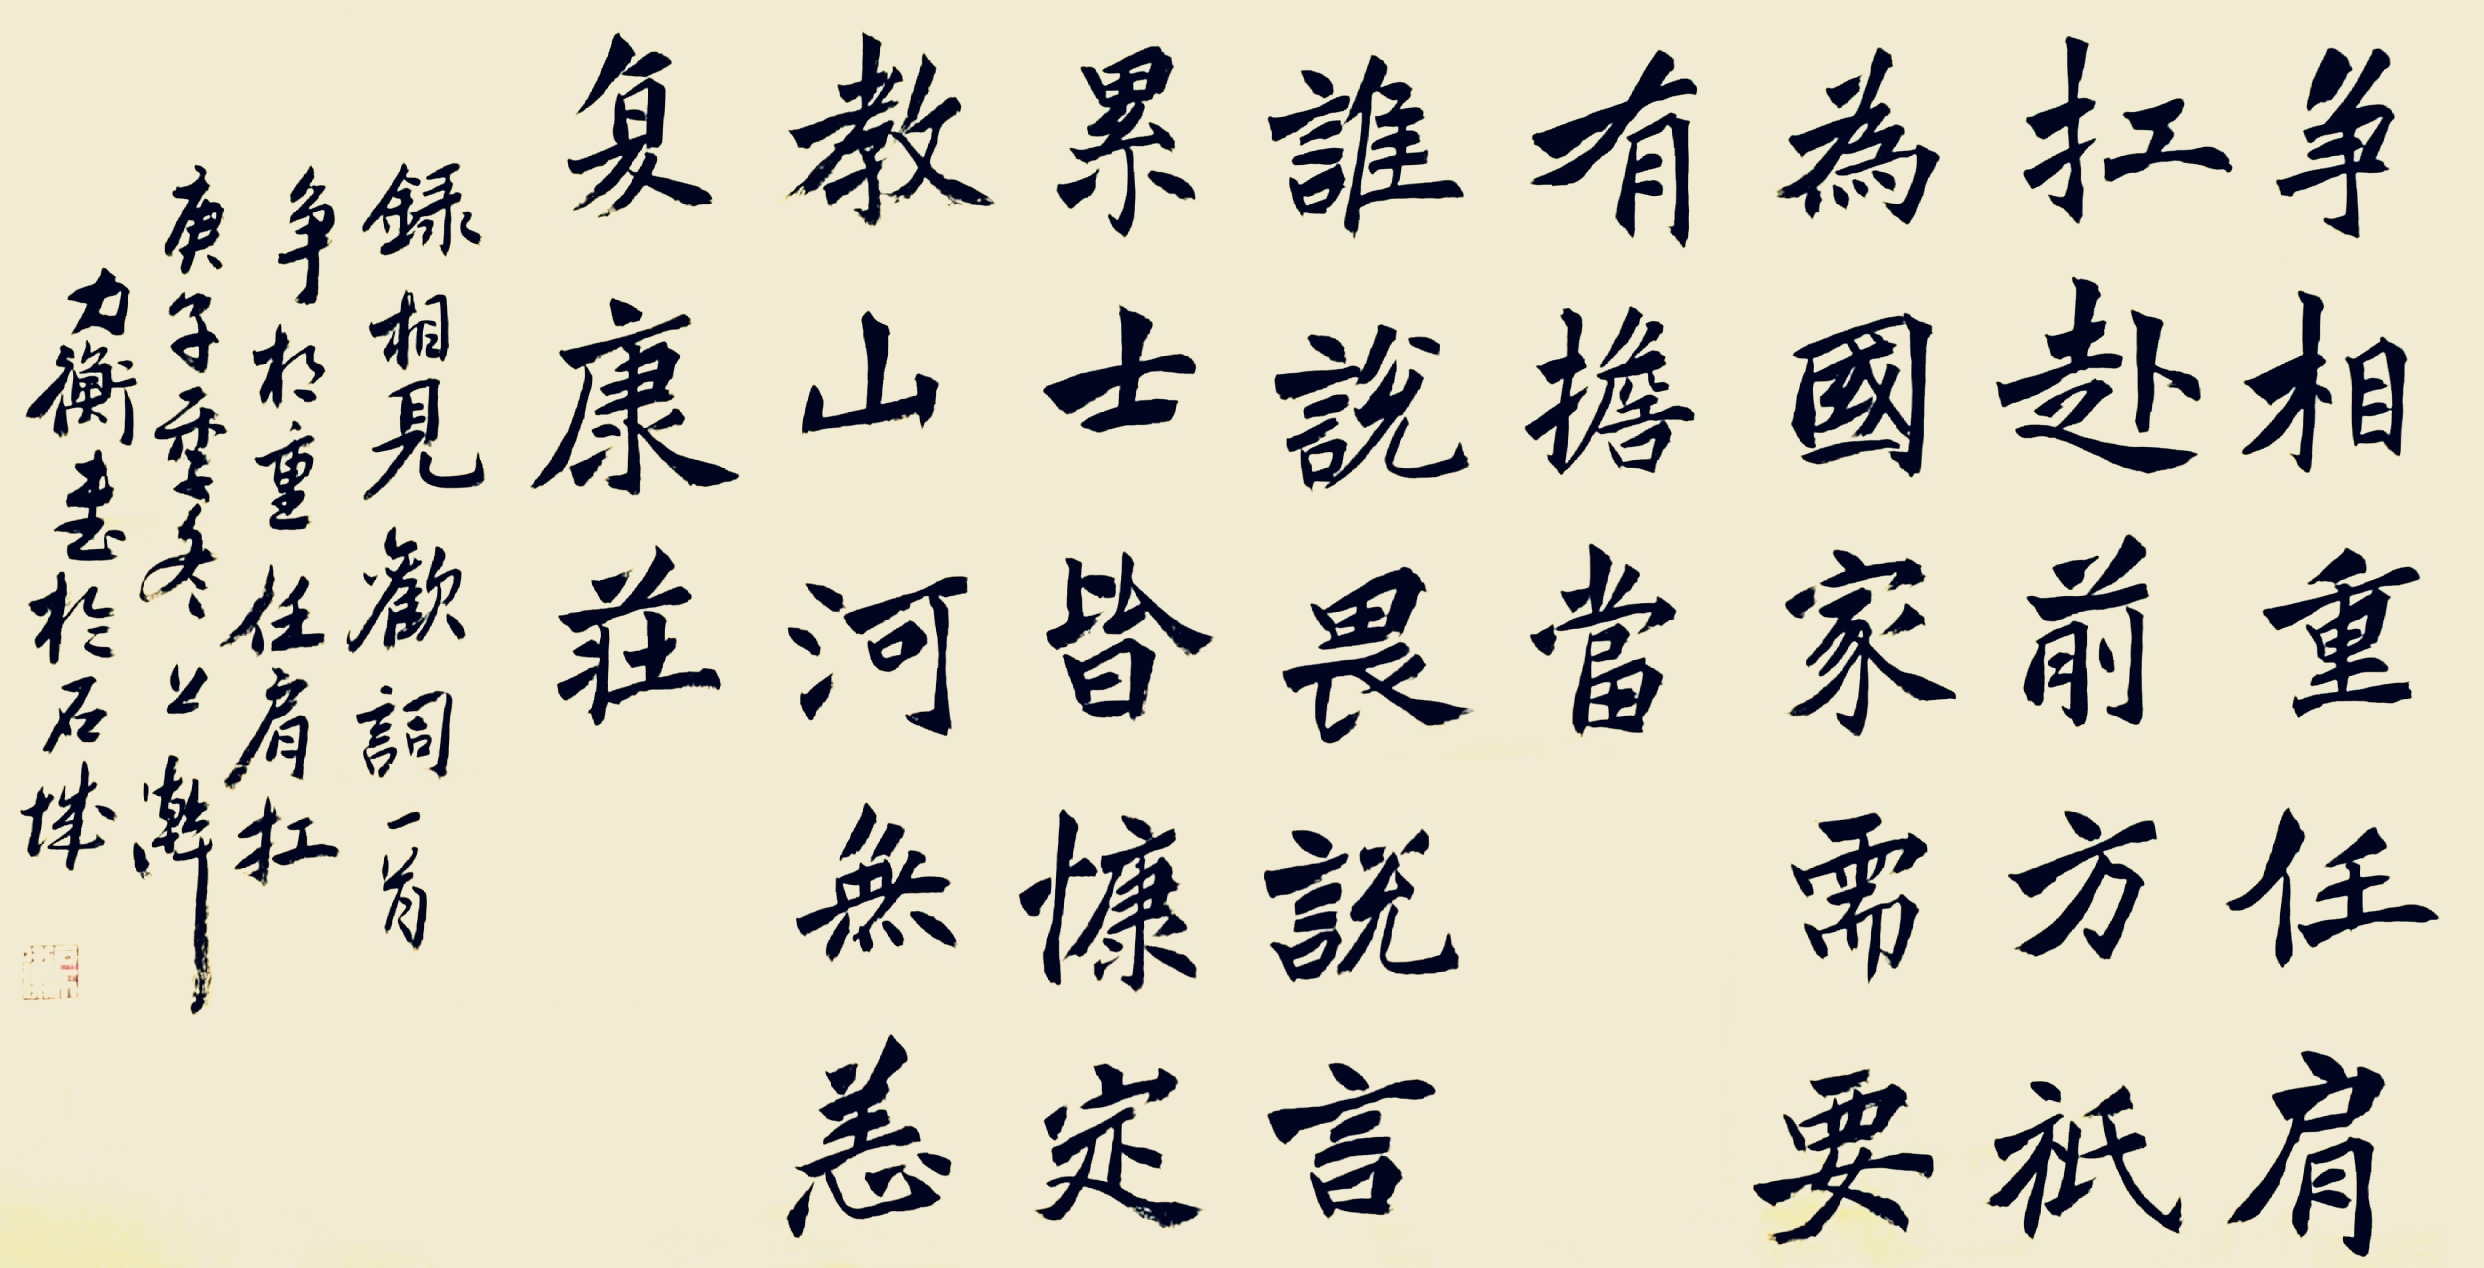 争相重任肩
扛赴前方祇
為國家需要
有擔當
誰說畏說言
累士皆慷定
教山河無恙
复康莊
録相見歡詞一首
争相重任肩扛
庚子冬澣
力衡書於石城